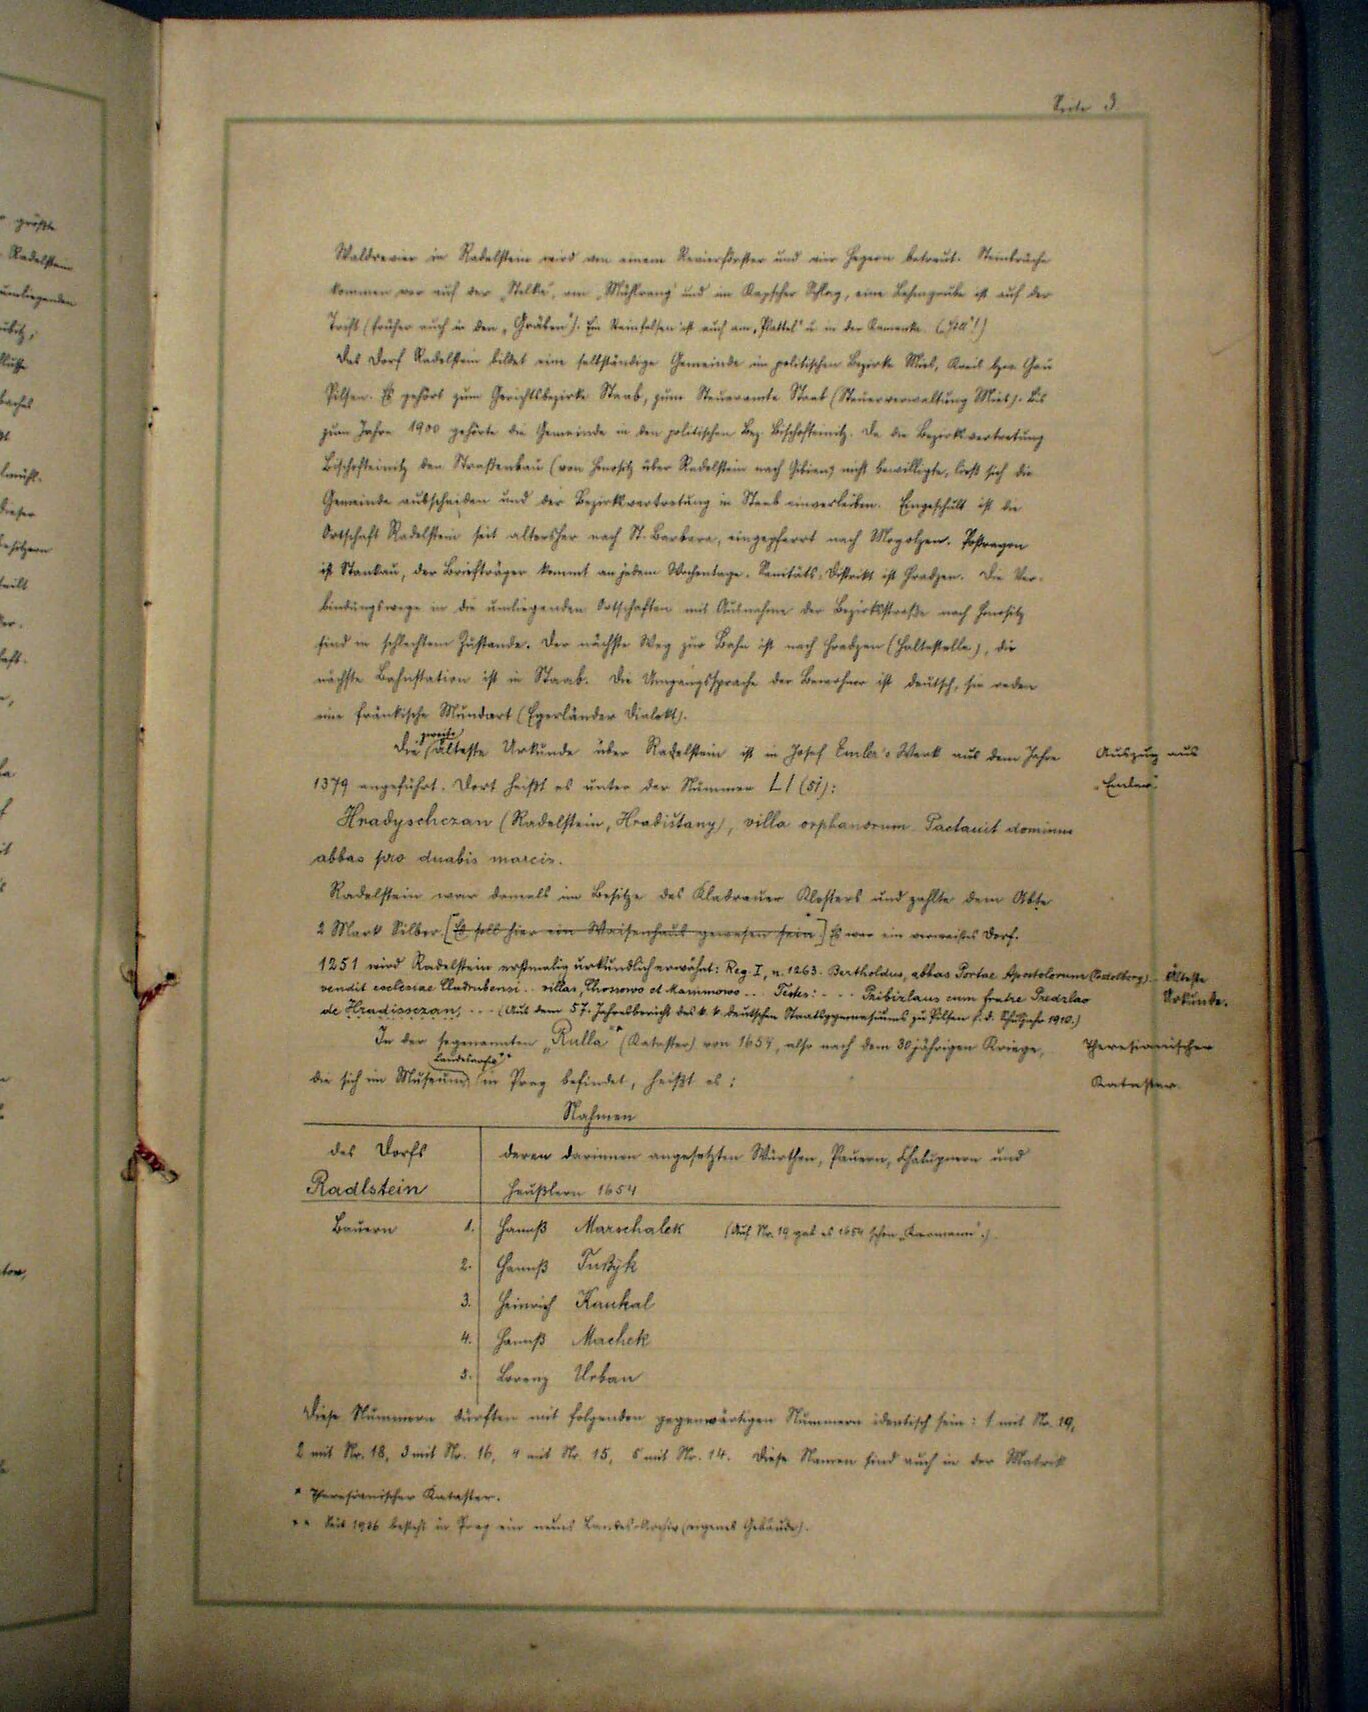 größte
Radelstein
umliegenden
Seite 3.
Waldrevier in Radelstein wird von einem Revierförster und ein Hegern betreut. Steinbrüche
kommen vor auf der „Stelke", am „Mühlrang" und im Kapscher Schlag, eine Lehmgrube ist auf der
Trift (früher auch in den „Gräben"). Ein Steinfelsen ist auch am „Plattel" u. in der Kamenka.
Das Dorf Radelstein bildet eine selbständige Gemeinde im politischen Bezirke Mies, Kreis bzw. Gau
Pilsen. Es gehört zum Gerichtsbezirke Staab, zum Steueramte Staab (Steuerverwaltung Mies). Bis
zum Jahre 1900 gehörte die Gemeinde in den politischen Bez. Bischofteinitz. Da die Bezirksvertretung
Bischofteinitz den Straßenbau (von Honositz über Radelstein nach Gibian) nicht bewilligte, ließ sich die
Gemeinde ausscheiden und der Bezirksvertretung in Staab einverleiben. Eingeschult ist die
Ortschaft Radelstein seit altersher nach St. Barbara, eingepfarrt nach Mogolzen. Postrayon
ist Stankau, der Briefträger kommt an jedem Wochentage. Sanitäts-Distrikt ist Hradzen. Die Ver-
bindungswege in die umliegenden Ortschaften mit Ausnahme der Bezirksstraße nach Honositz
sind in schlechtem Zustande. Der nächste Weg zur Bahn ist nach Hradzen (Haltestelle), die
nächste Bahnstation ist in Staab. Die Umgangssprache der Bewohner ist deutsch, sie reden
eine fränkische Mundart (Egerländer Dialekt).
zweite
Die älteste Urkunde über Radelstein ist in Josef Emler's Werk aus dem Jahre
Auszug aus
1379 angeführt. Dort heißt es unter der Nummer LI (51):
„Emler".
Hradyschczan (Radelstein, Hradištany), villa orphanorum. Pactavit dominus
abbas pro duabis marcis.
Radelstein war damals im Besitze des Kladrauer Klosters und zahlte dem Abte
2 Mark Silber. [Es soll hier ein Waisenhaus gewesen sein.] Es war ein verwaistes Dorf.
1251 wird Radelstein erstmalig urkundlich erwähnt: Reg. I, n. 1263. Bertholdus, abbas Portae Apostolorum
Älteste
vendit ecclesiae Cladrubensi .. villas, Chossowo et Mammowo ... Testes: ... Pribizlaus cum fratre Predzlao
Urkunde.
de Hradissczan, ... (Aus dem 57. Jahresbericht des k. k. deutschen Staatsgymnasiums zu Pilsen f. d. Schuljahr 1910.)
In der sogenannten „Rulla"* (Kataster) von 1654, also nach dem 30jährigen Kriege,
Theresianischer
Landesarchiv**
die sich im Museum in Prag befindet, heißt es:
Kataster.
Nahmen
des Dorfs
deren darinnen angesetzten Würthen, Pauern, Chalupnern und
Radlstein
Heußlern 1654
Bauern 1. Hannß Marschalek (Auf Nr. 19 gab es 1654 schon „Karmann".)
2. Hannß Tußyk
3. Heinrich Kaukal
4. Hannß Machek
5. Lorenz Urban
Diese Nummern dürften mit folgenden gegenwärtigen Nummern identisch sein: 1 mit Nr. 19,
2 mit Nr. 18, 3 mit Nr. 16, 4 mit Nr. 15, 5 mit Nr. 14. Diese Namen sind auch in der Matrik
* Theresianischer Kataster.
** Seit 1936 besteht in Prag ein neues Landes-Archiv (eigenes Gebäude).